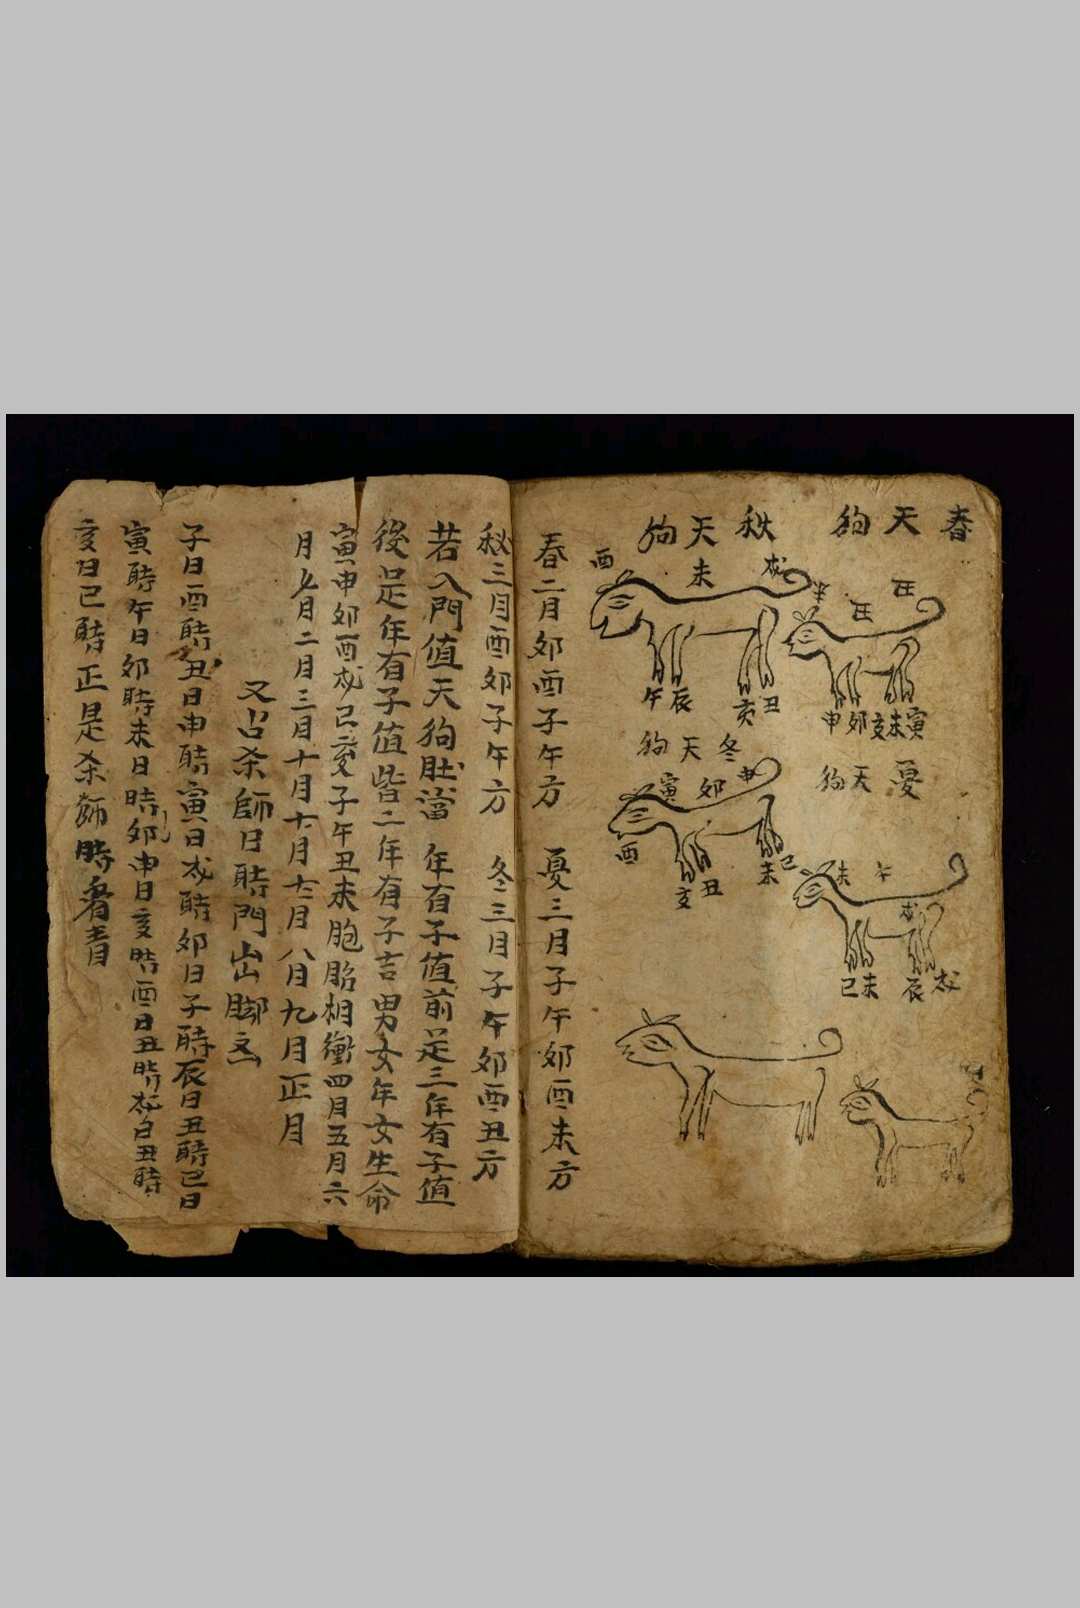 春天狗
秋天狗
酉
未
戍
午
辰
亥
丑
申
卯
亥
未
寅
夏天狗
未
午
戍
巳
未
辰
戍
冬天狗
寅
卯
申
酉
亥
丑
未
巳
春二月卯酉子午方 夏三月子午卯酉未方
秋三月酉卯子午方 冬三月子午卯酉丑方
若入門值天狗肚當 年有子值前足三年有子值
後足年有子值皆二年有子吉男女年女生命
寅申卯酉戍巳亥子午丑未胞胎相衝四月五月六
月七月二月三月十月十一月十二月八月九月正月
又占杀師日時門出脚
子日酉時丑日申時寅日戍時卯日子時辰日丑時巳日
寅時午日卯時未日時卯申日亥時酉日丑時戍日丑時
亥日巳時正是杀師時